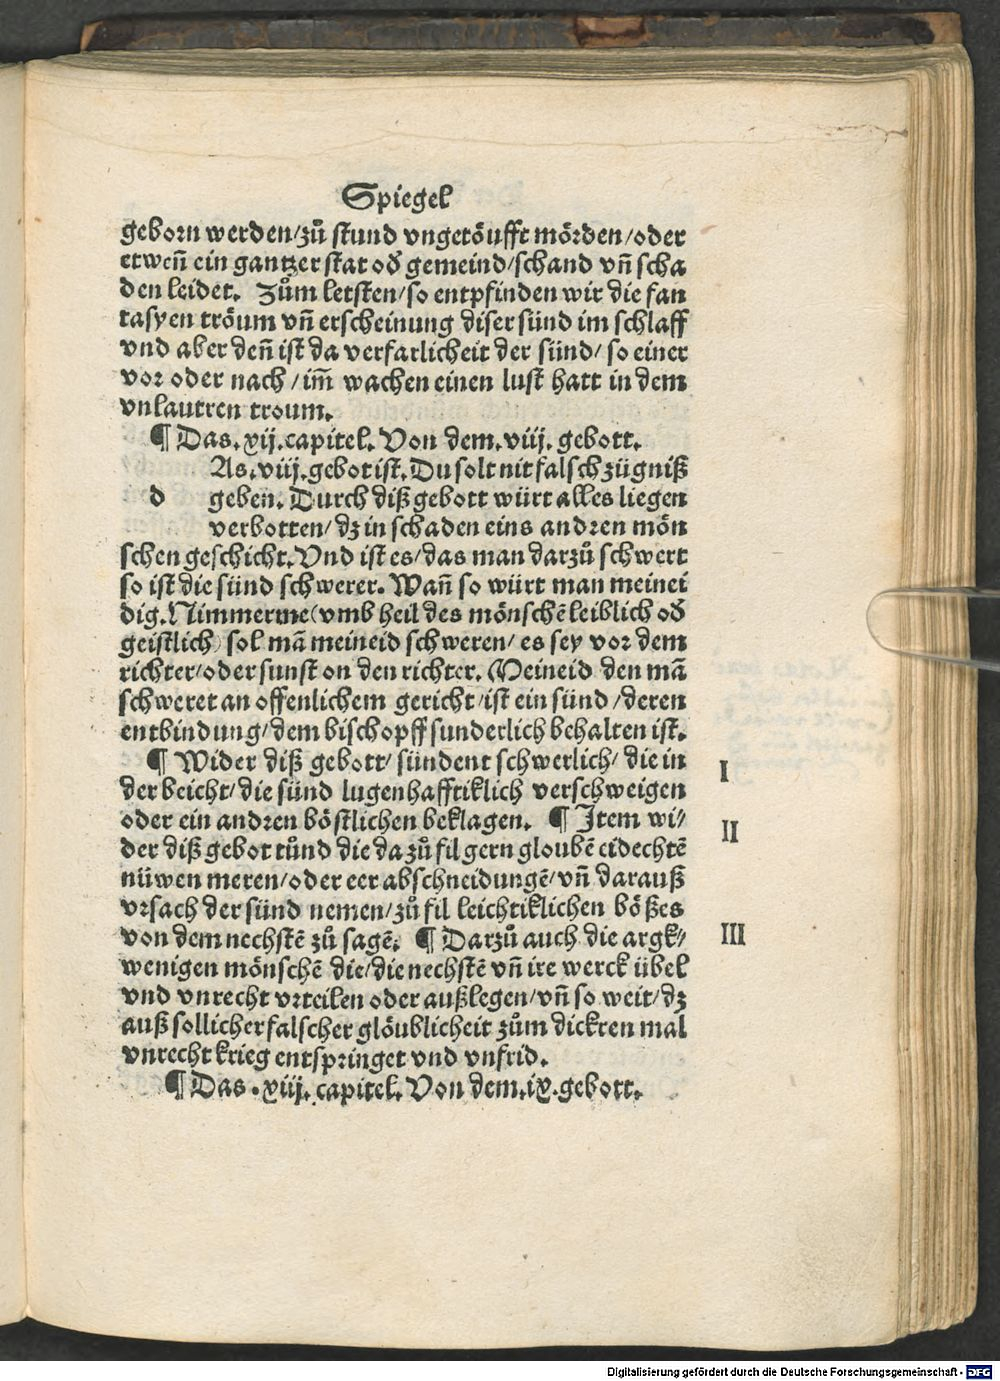 Spiegel
geborn werden/zuͦ stund vngetöufft mörden/oder
etweñ ein gantzer stat oď gemeind/schand vñ scha
den leidet. Zuͦm letsten/so entpfinden wir die fan
tasyen tröum vñ erscheinung diser sünd im schlaff
vnd aber deñ ist da verfarlicheit der sünd/ so einer
vor oder nach /im̄ wachen einen lust hatt in dem
vnlautren troum.
¶ Das.xij.capitel. Von dem.viij. gebott.
As.viij.gebot ist. Du solt nit falsch zügniß
d geben. Durch diß gebott würt alles liegen
verbotten/ dz in schaden eins andren mön
schen geschicht. Vnd ist es/das man darzuͦ schwert
so ist die sünd schwerer. Wañ so würt man meinei
dig. Nimmerme(vmb heil des mönschē leiblich oď
geistlich) sol mā meineid schweren/ es sey vor dem
richter/oder sunst on den richter. Meineid den mā
schweret an offenlichem gericht/ist ein sünd /deren
entbindung/dem bischopff sunderlich behalten ist.
¶ Wider diß gebott/ sündent schwerlich/ die in
der beicht/die sünd lugenhafftiklich verschweigen
oder ein andren böstlichen beklagen. ¶ Item wi/
der diß gebot tuͦnd die da zuͦ fil gern gloubē eidechtē
nüwen meren/oder eer abschneidungē/vñ darauß
vrsach der sünd nemen/zuͦ fil leichtiklichen bößes
von dem nechstē zuͦ sagē. ¶ Darzuͦ auch die argk/
wenigen mönschē die/die nechstē vñ ire werck übel
vnd vnrecht vrteilen oder außlegen/vñ so weit/dz
auß sollicher falscher glöublicheit zuͦm dickren mal
vnrecht krieg entspringet vnd vnfrid.
¶ Das.xiij.capitel. Von dem.ix.gebott.
I
II
III
Digitalisierung gefördert durch die Deutsche Forschungsgemeinschaft - DFG